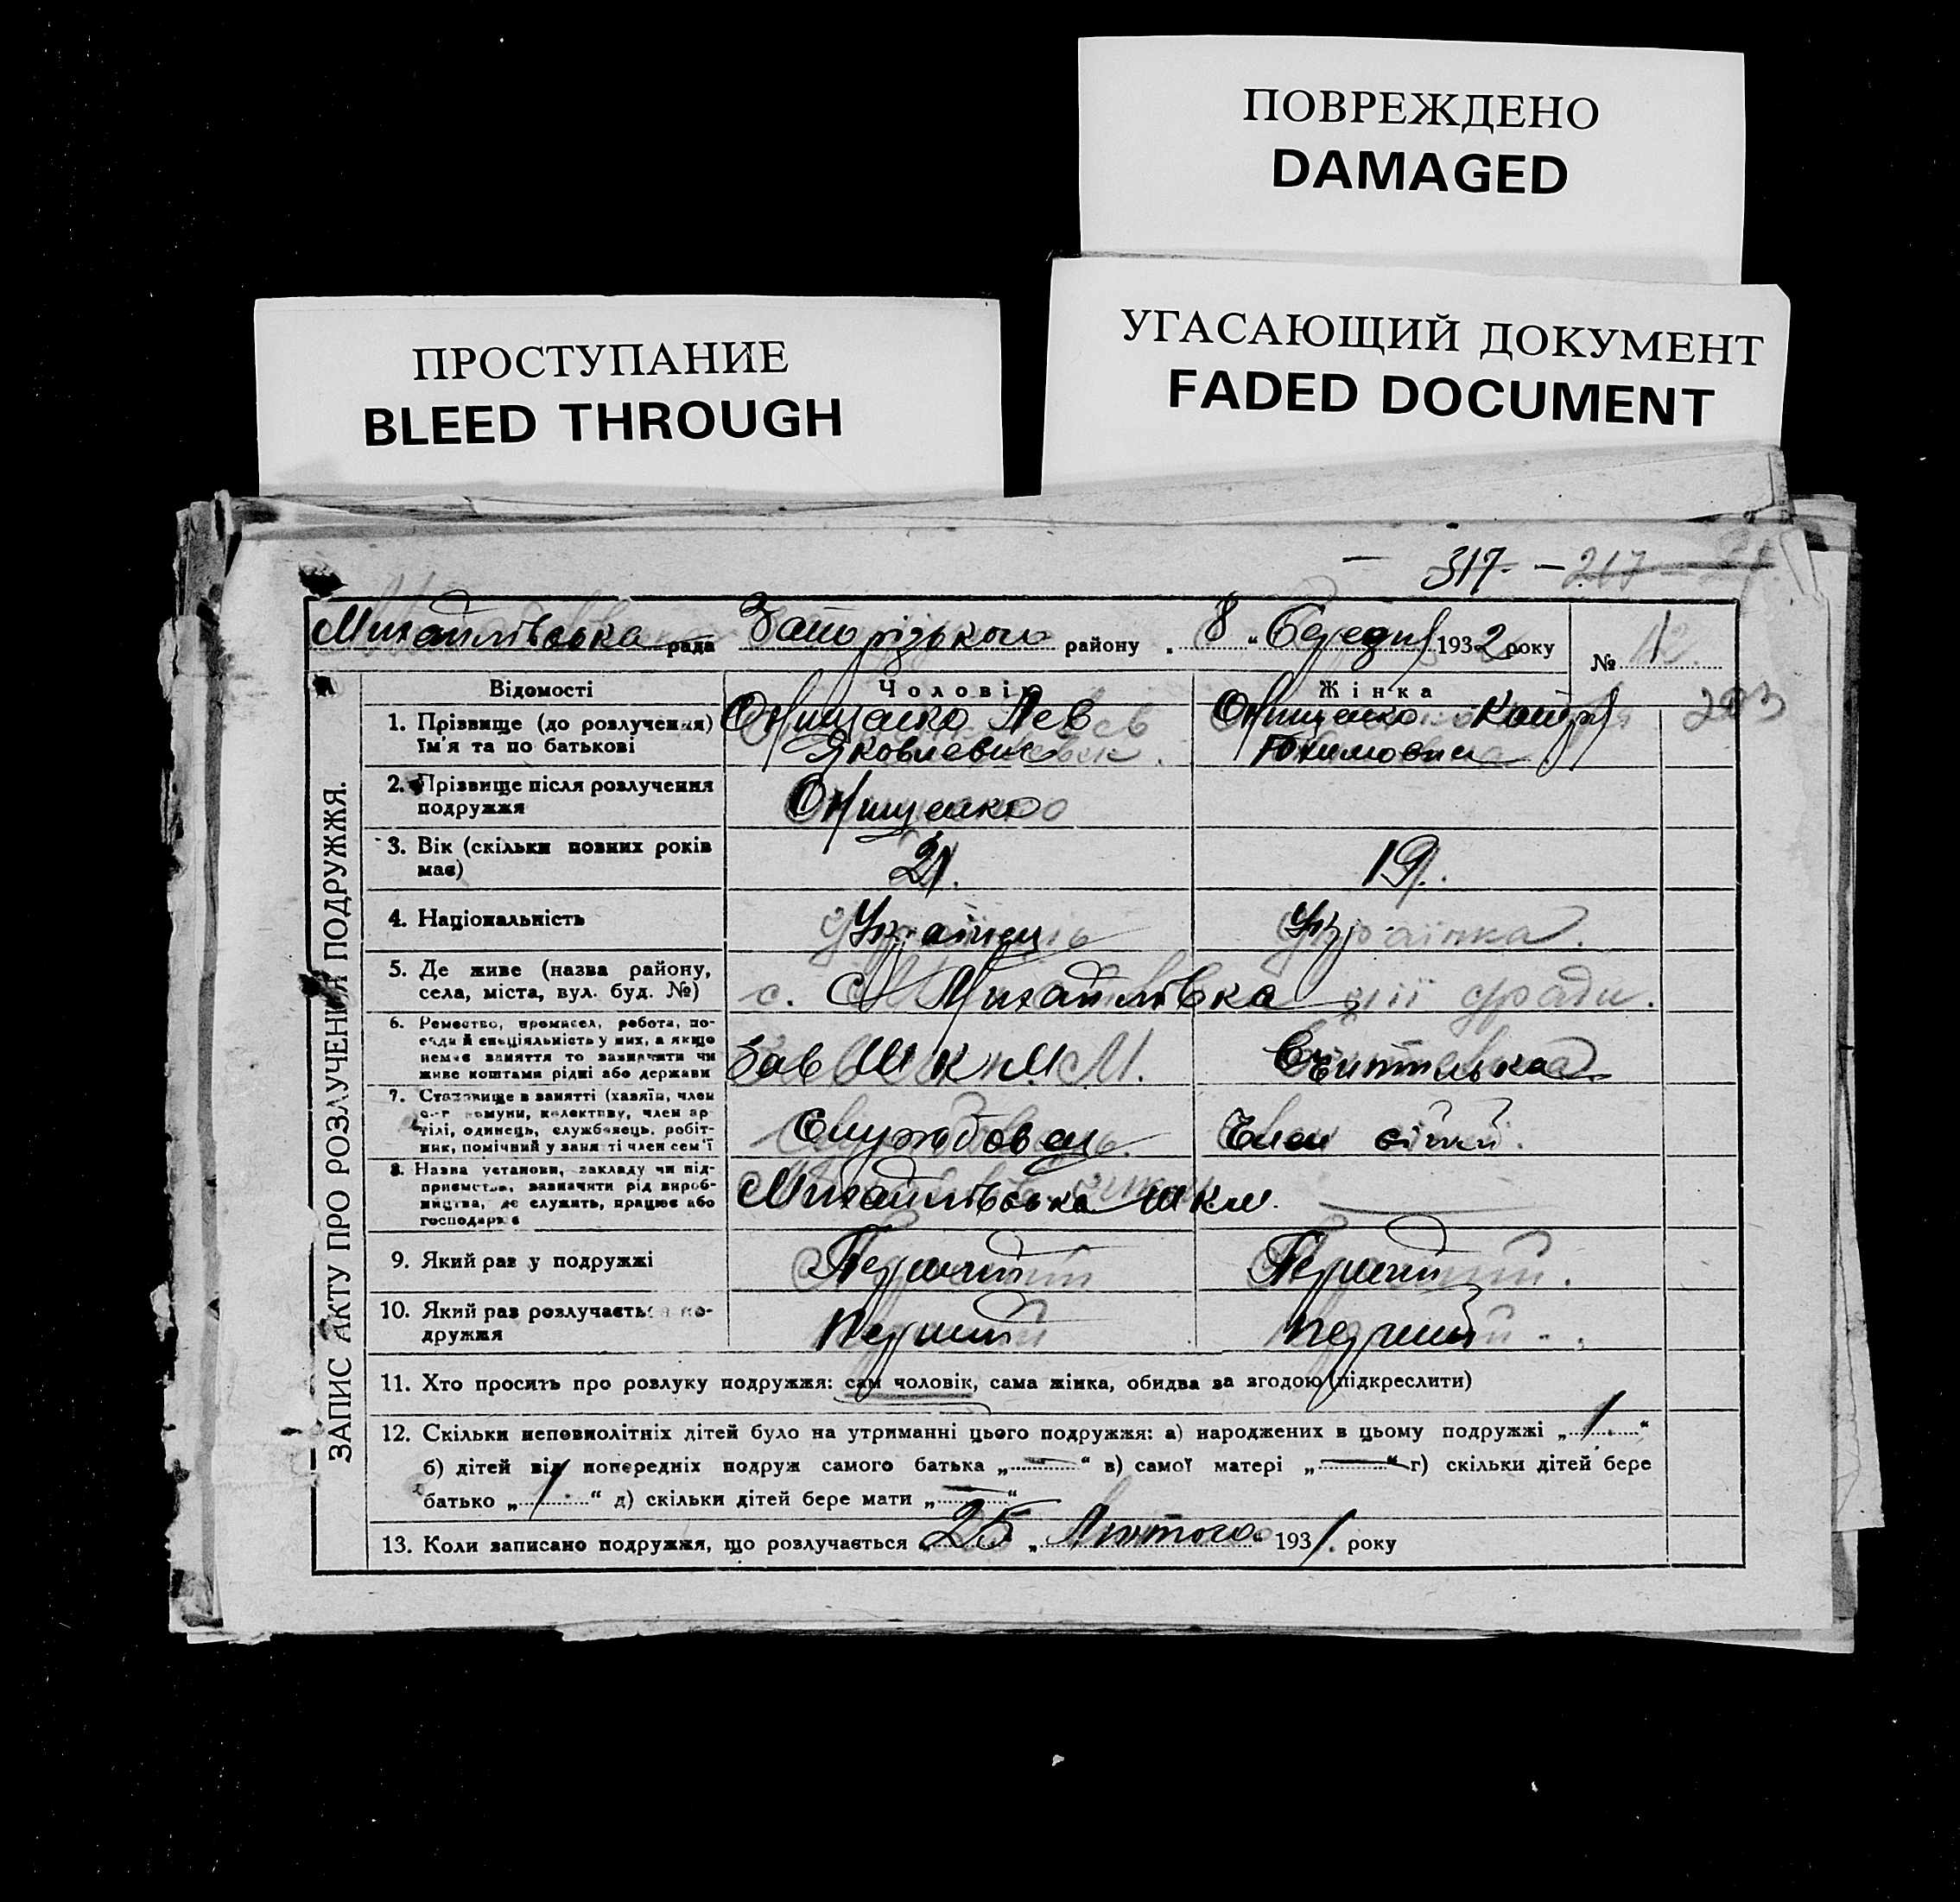 ПОВРЕЖДЕНО
DAMAGED
ПРОСТУПАНИЕ
BLEED THROUGH
УГАСАЮЩИЙ ДОКУМЕНТ
FADED DOCUMENT
— 317. — 217 —
Михайлівська рада Запорізького району „ 8 “ Березня 1932 року № 1
ЗАПИС АКТУ ПРО РОЗЛУЧЕННЯ ПОДРУЖЖЯ.
Відомості Чоловік Жінка
1. Прізвище (до розлучення) Онищенко Лев Онищенко 203
ім'я та по батькові Яковлевич Юхимовна
2. Прізвище після розлучення Онищенко
подружжя
3. Вік (скільки повних років 21. 19.
має)
4. Національність Українець Українка.
5. Де живе (назва району, с. Михайлівка
села, міста, вул. буд. №)
6. Ремество, промисел, робота, по-
сада й спеціяльність у них, а якщо
немає заняття то зазначити чи Зав Ш К М Вчителька
живе коштами рідні або держави
7. Становище в занятті (хазяїн, член
с.-г комуни, колективу, член ар-
тілі, одинець, службовець, робіт- Службовець. Член сімї.
ник, помічний у занятті член сем'ї
8. Назва установи, закладу чи під-
приємства, зазначити рід вироб-
ництва, де служить, працює або Михайлівська шкм.
господарює
9. Який раз у подружжі Перший Перший
10. Який раз розлучається по- Перший Перший
дружжя
11. Хто просить про розлуку подружжя: сам чоловік, сама жінка, обидва за згодою (підкреслити)
12. Скільки неповнолітніх дітей було на утриманні цього подружжя: а) народжених в цьому подружжі „ 1 “
б) дітей від попередніх подруж самого батька „ — “ в) самої матері „ — “ г) скільки дітей бере
батько „ 1 “ д) скільки дітей бере мати „ — “
13. Коли записано подружжя, що розлучається „ 25 „ Лютого “ 1931. року